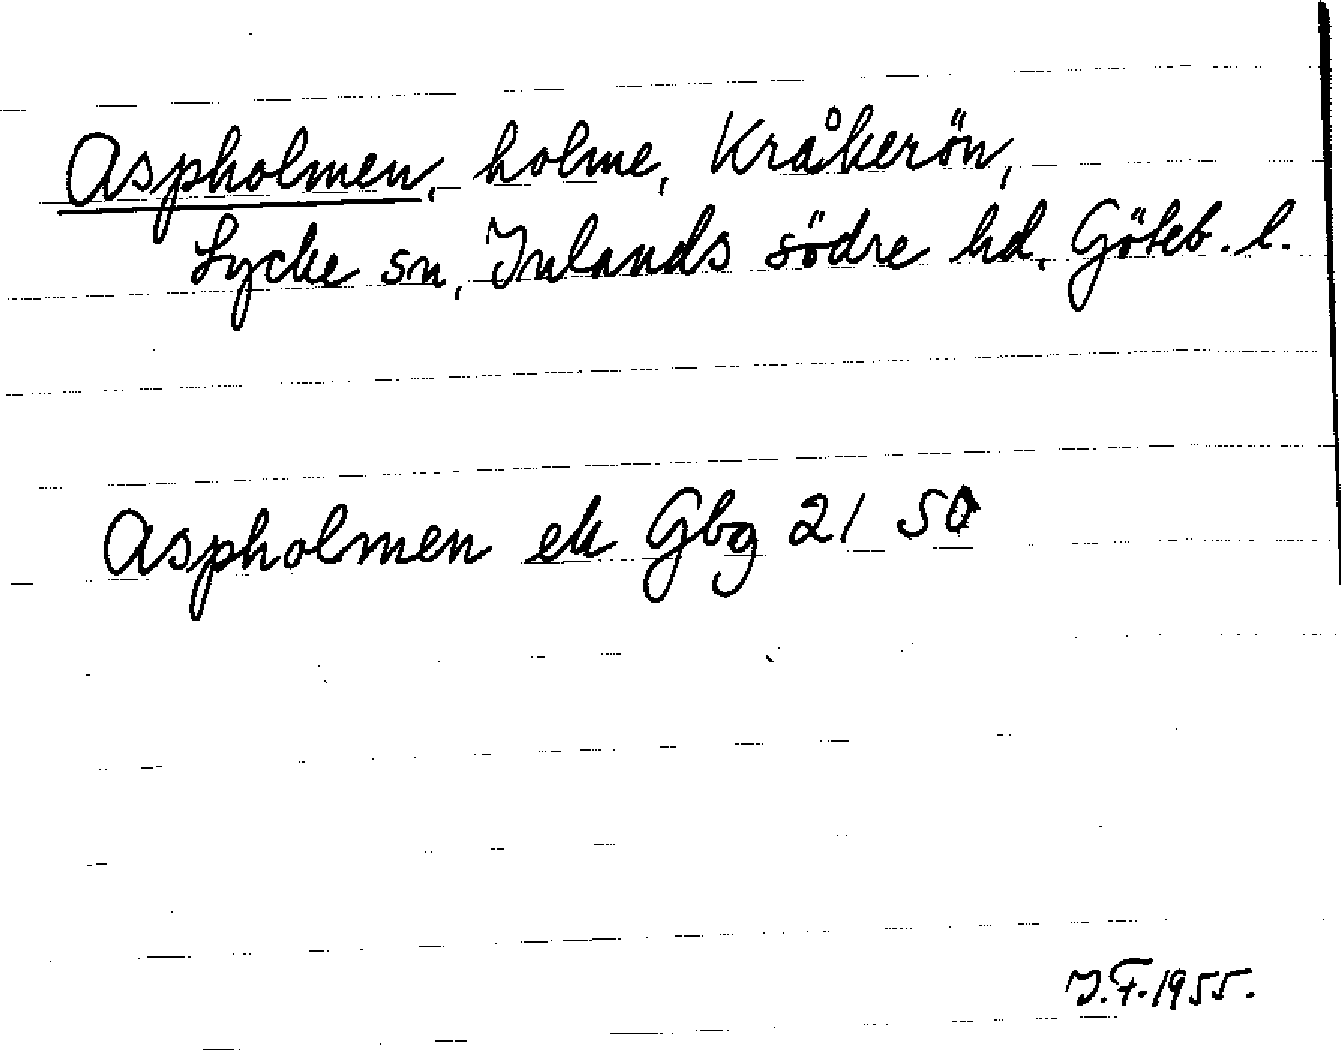 Aspholmen, holme, Kråkerön,
Lycke sn, Inlands södre hd, Göteb. l.
Aspholmen ek Gbg 21 SO
I.F. 1955.